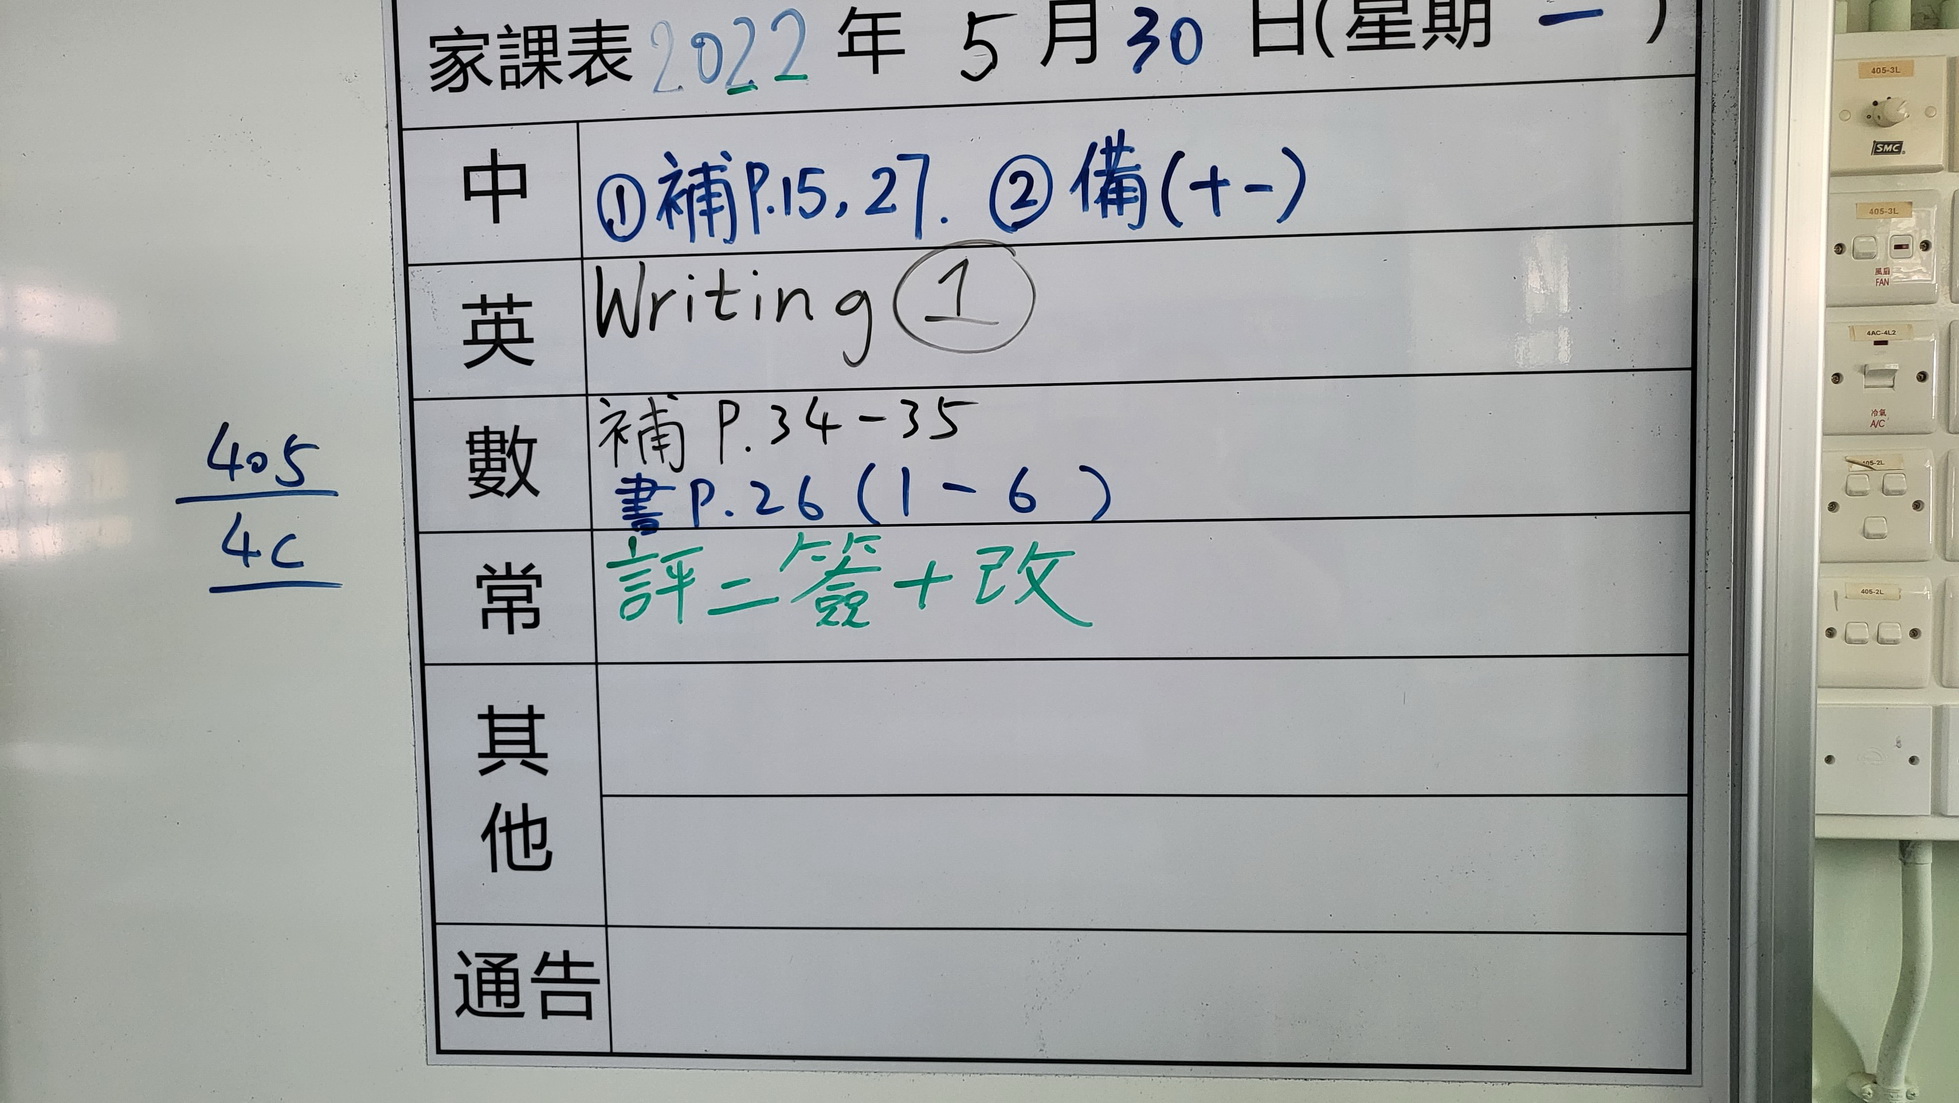 家課表 2022 年 5 月 30 日(星期 一 )
中 ①補P.15, 27. ②備(+-)
英 Writing ①
數 補 P.34-35
書P.26 (1-6)
常 評二簽+改
其他
通告
405
4C
405-3L
SMC
405-3L
風扇
FAN
4AC-4L2
冷氣
A/C
405-2L
405-2L